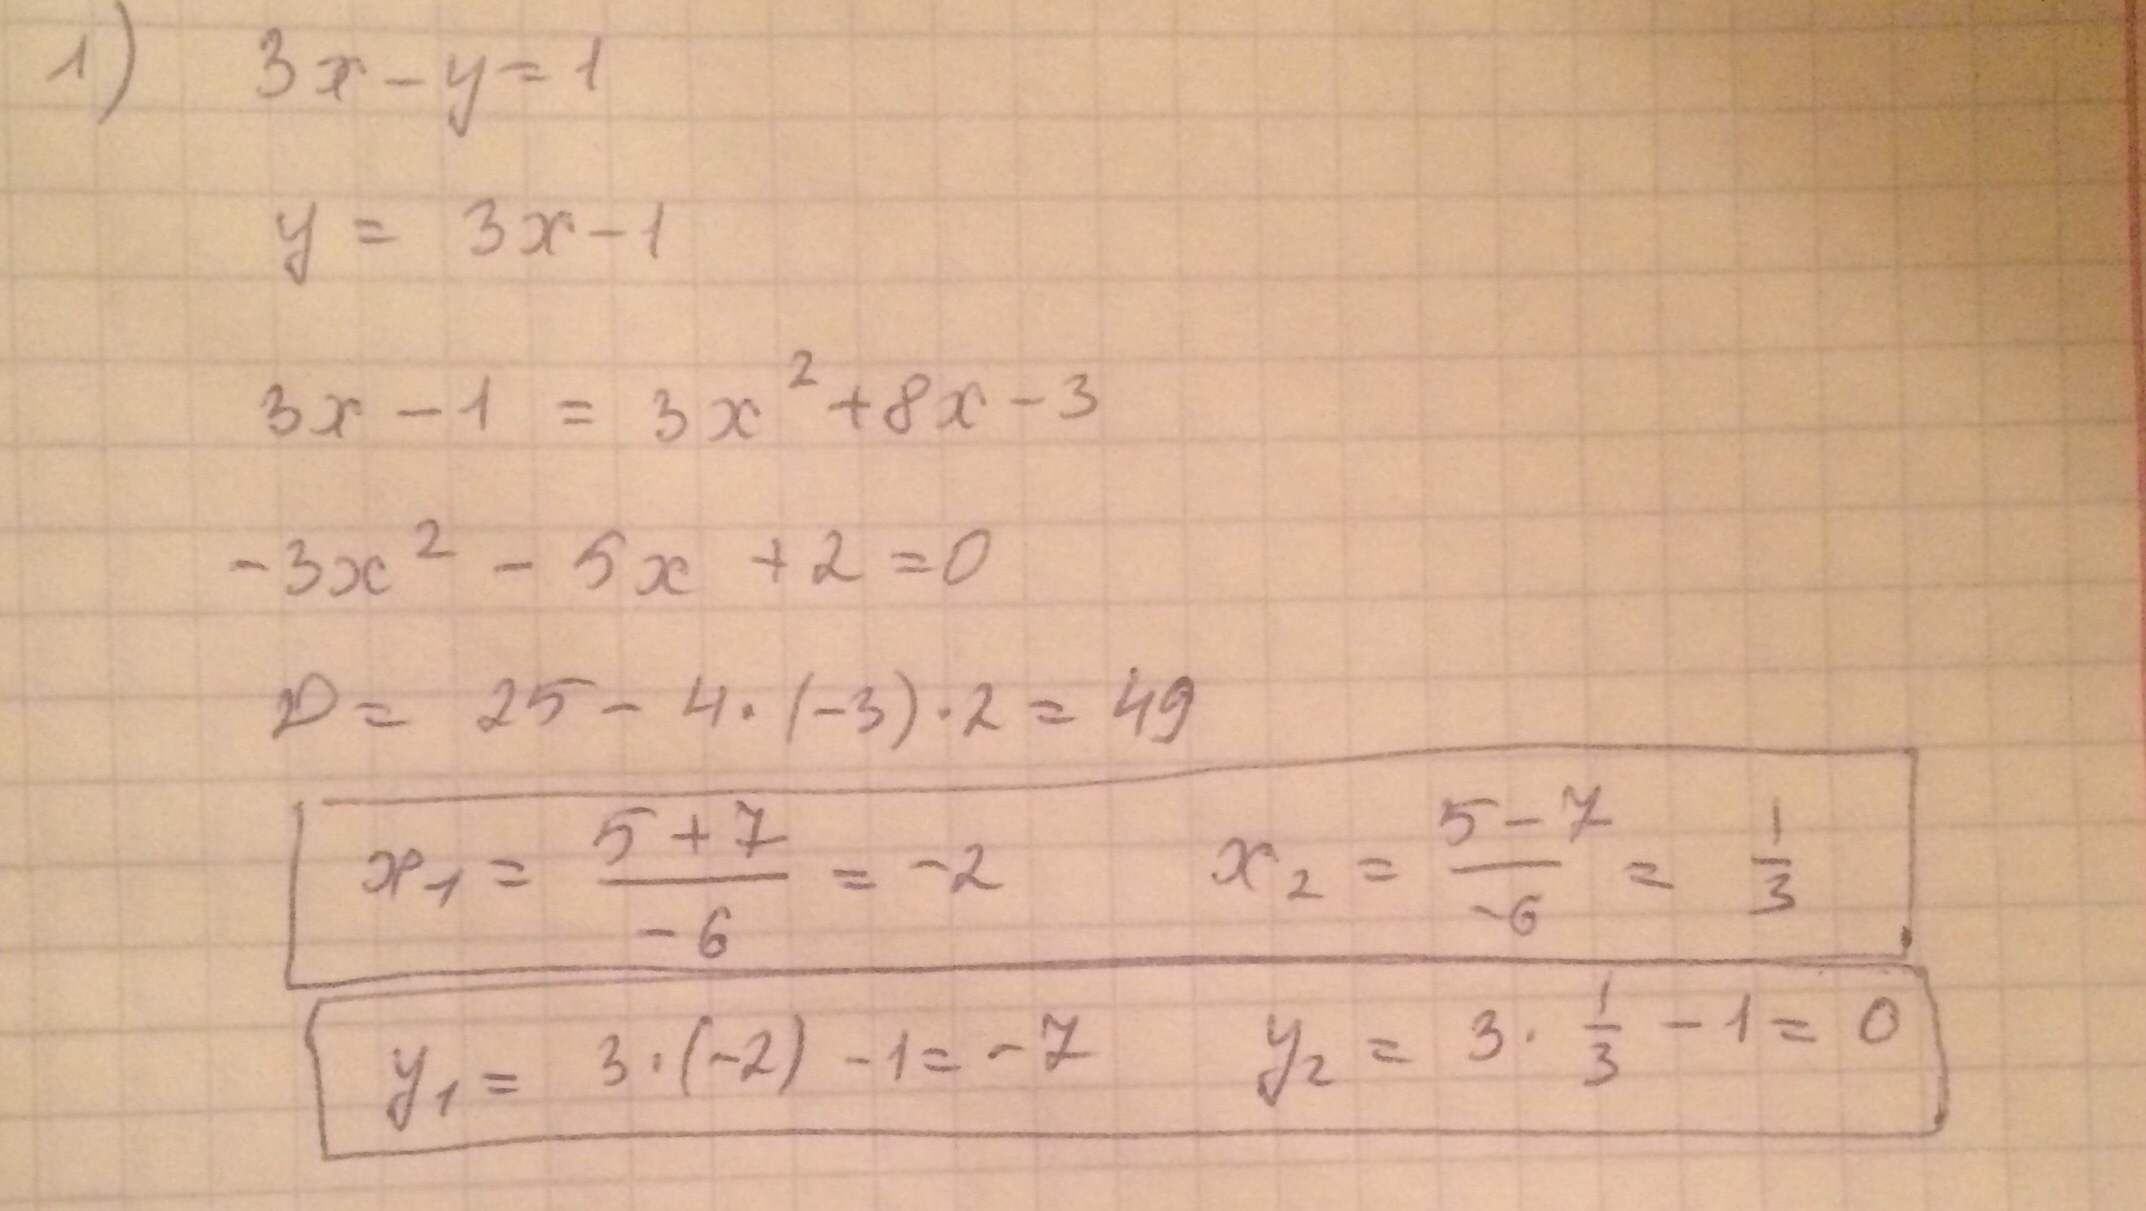 1) 3x - y = 1
y = 3x - 1
3x - 1 = 3x² + 8x - 3
-3x² - 5x + 2 = 0
D = 25 - 4·(-3)·2 = 49
x₁ = (5+7)/(-6) = -2 x₂ = (5-7)/(-6) = 1/3
y₁ = 3·(-2) - 1 = -7 y₂ = 3·1/3 - 1 = 0